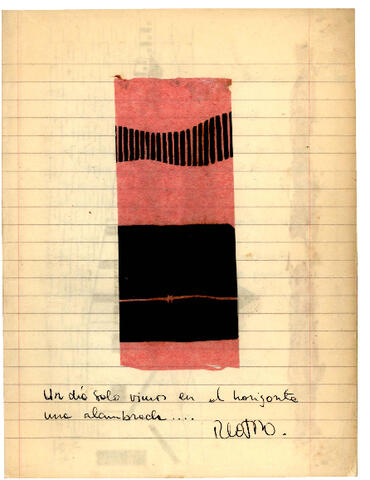 Un día solo vimos en el horizonte
una alambrada ....